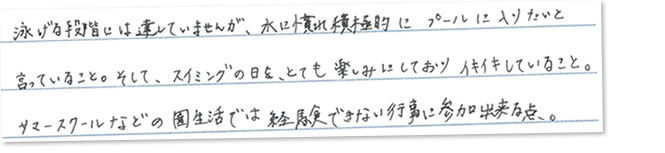 泳げる段階には達していませんが、水に慣れ積極的に プールに入りたいと
言っていること。そして、スイミングの日を、とても 楽しみにしており イキイキしていること。
サマースクールなどの 園生活では 経験できない行事に参加出来る点、。